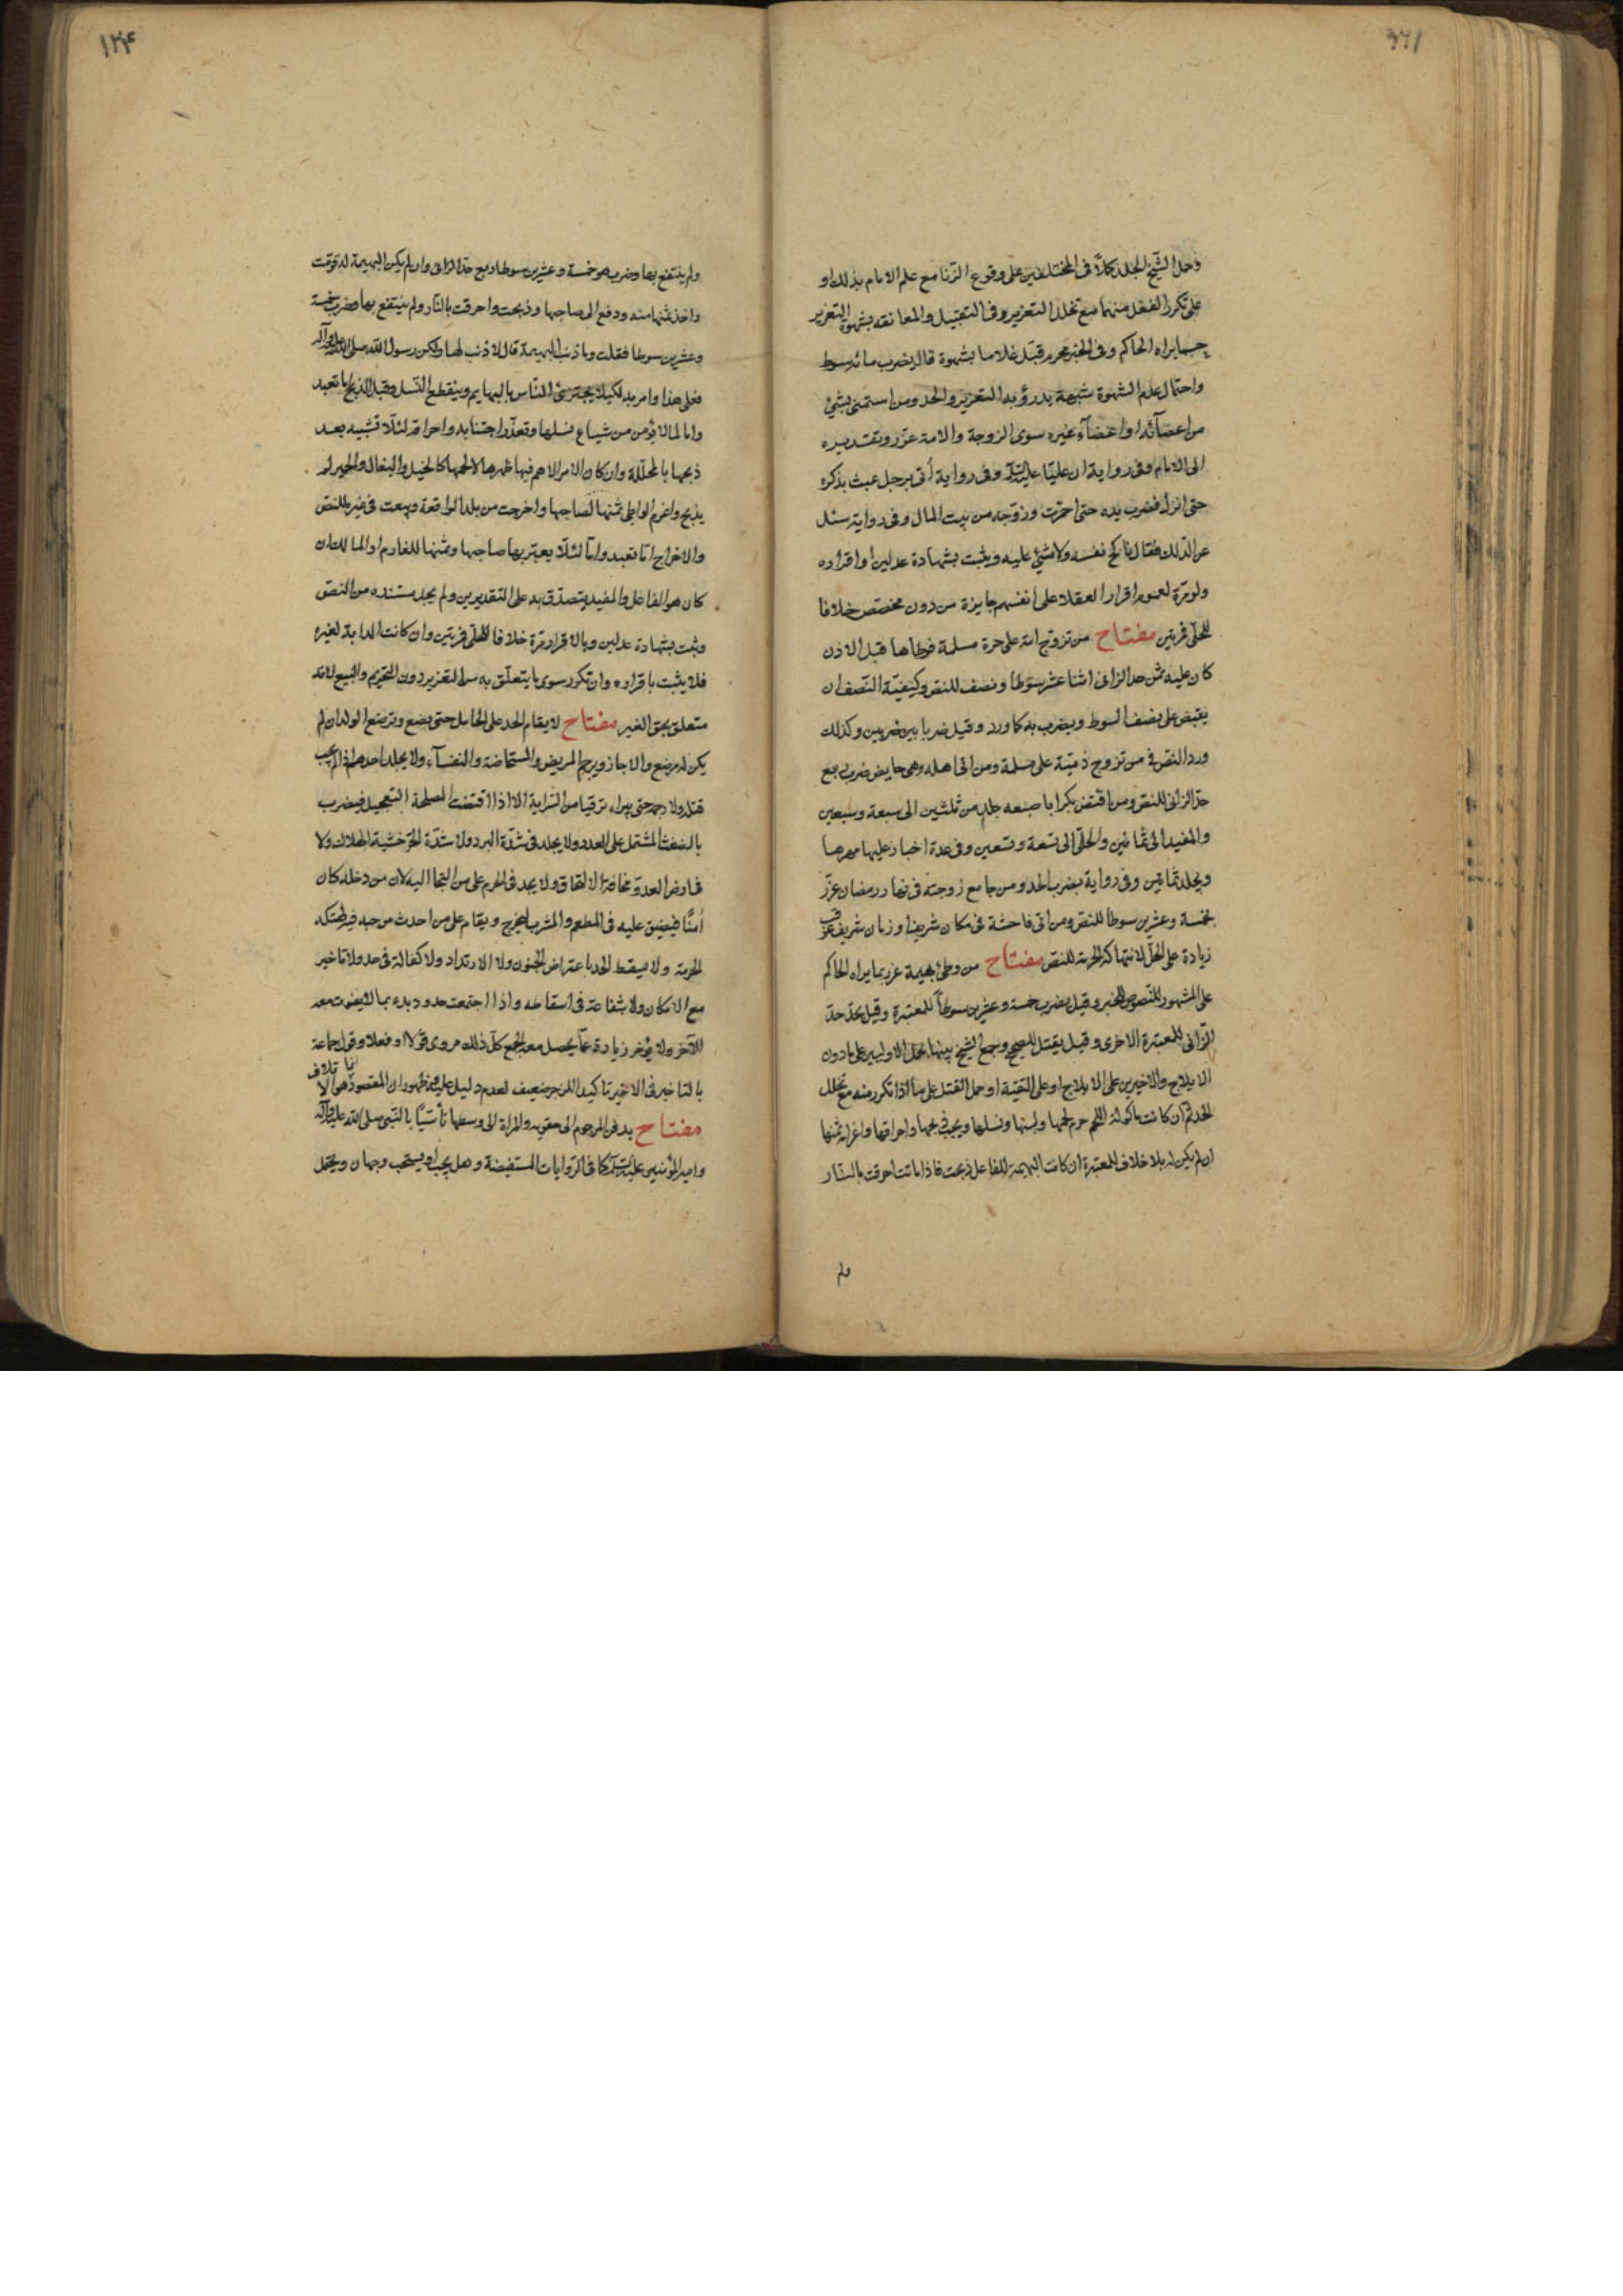 وحمل الشيخ الجلد كملا فى المختلفين على وقوع الزنا مع علم الامام بذلك او
على تكرر الفعل منهما مع تخلل التعزير وفى التقبيل والمعانقه بشهوة التعزير
بحسب ما يراه الحاكم وفى الخبر محرم قبّل غلاما بشهوة قال يضرب مائة سوط
واحتمال عدم الشهوة شبهة يدرؤ به التعزير والحد ومن استمنى بشئ
من اعضآئه او اعضآء غيره سوى الزوجة والامة عزّر وتقديره
الى الامام وفى رواية ان عليّا عليه السلام وفى رواية أتى برجل عبث بذكره
حتى انزل فضرب يده حتى احمرّت وزوّجه من بيت المال وفى رواية سئل
عن الدلك فقال ناكح نفسه ولا شئ عليه ويثبت بشهادة عدلين او اقراره
ولو مرّة لعموم اقرار العقلاء على انفسهم جايزة من دون مخصّص خلافا
للحلّى فمرتين مفتاح من تزوج امة على حرة مسلمة فوطأها قبل الاذن
كان عليه ثمن حد الزانى اثنا عشر سوطا ونصف للنص وكيفيّة النّصف ان
يقبض على نصف السوط ويضرب به كما ورد وقيل ضربا بين ضربين وكذلك
ورد النص فى من تزوج ذميّة على مسلمة ومن اتى اهله وهى حايض ضرب ربع
حدّ الزانى للنص ومن اقتض بكرا باصبعه جلد من ثلثين الى سبعة وسبعين
والمفيد الى ثمانين والحلّى الى تسعة وتسعين وفى عدة اخبار عليها مهرها
ويجلد ثمانين وفى رواية يضرب الحد ومن جامع زوجته فى نهار رمضان عزّر
بخمسة وعشرين سوطا للنص ومن اتى فاحشة فى مكان شريف او زمان شريف عوقب
زيادة على الحدّ لانتهاكه الحرمة للنص مفتاح من وطئ بهيمة عزر بما يراه الحاكم
على المشهور للنصوص للخبر وقيل يضرب خمسة وعشرين سوطاً للمعتبرة وقيل يحدّ حدّ
الزّانى للمعتبرة الاخرى وقيل يقتل للصحيح وجمع الشيخ بينها بحمل الاوليين على ما دون
الايلاج والاخيرين على الايلاج او على التقيّة او حمل القتل على ما اذا تكرر منه مع تخلل
الحد ثم ان كانت ماكولة اللحم حرم لحمها ولبنها ونسلها ويجب ذبحها واحراقها واغرامه ثمنها
ان لم يكن له بلا خلاف للمعتبرة ان كانت البهيمة للفاعل ذبحت فاذا ماتت احرقت بالنار
ولم
١٢۴
ولم ينتفع بها وضرب هو خمسة وعشرين سوطا ربع حدّ الزانى وان لم يكن البهيمة له قوّمت
واخذ ثمنها منه ودفع الى صاحبها وذبحت واحرقت بالنّار ولم ينتفع بها وضرب خمسة
وعشرين سوطا فقلت وما ذنب البهيمة قال لا ذنب لها ولكن رسول الله صلى الله عليه وآله
فعل هذا وامر به لكيلا يجترئ النّاس بالبهايم وينقطع النّسل وقيل الذبح اما تعبد
واما لما لا يؤمن من شياع نسلها وتعذّر اجتنابه واحراقه لئلّا تشبيه بعد
ذبحها بالمحلّلة وان كان الامر الاهم فيها ظهرها لا لحمها كالخيل والبغال والحمير لم
يذبح واغرم الواطى ثمنها لصاحبها واخرجت من بلد الواقعة وبيعت فى غيره للنص
والاخراج امّا تعبد وامّا لئلّا يعيّر بها صاحبها وثمنها للغارم او المالك ان
كان هو الفاعل والمفيد يتصدّق به على التقديرين ولم يجد مستنده من النصّ
ويثبت بشهادة عدلين وبالاقرار مرّة خلافا للحلّى فمرّتين وان كانت الدابة لغيره
فلا يثبت باقراره وان تكرر سوى ما يتعلّق به من التعزير دون التحريم والبيع لانّه
متعلق بحق الغير مفتاح لا يقام الحد على الحامل حتى يضع وترضع الولد ان لم
يكن له مرضع والا جاز ويرجم المريض والمستحاضة والنفسآء ولا يجلد احدهم اذا لم يجب
قتله ولا رجمه حتى يبراء توقيا من السّراية الا اذا اقتضت المصلحة التعجيل فيضرب
بالضغث المشتمل على العدد ولا يجلد فى شدّة البرد ولا شدّة الحرّ خشية الهلاك ولا
فى ارض العدوّ مخافة الالتحاق ولا يحد فى الحرم على من التجا اليه لان من دخله كان
آمنًا فيضيق عليه فى المطعم والمشرب ليخرج ويقام على من احدث موجبه فيه لهتكه
الحرمة ولا يسقط الحد باعتراض الجنون ولا الارتداد ولا كفالة فى حد ولا تاخير
مع الامكان ولا شفاعة فى اسقاطه واذا اجتمعت حدود بدء بما لا يفوت معه
الآخر ولا يؤخر زيادة عمّا يحصل معه الجمع كلّ ذلك مروى قولا او فعلا وقول جماعة
بالتاخير فى الاخير تاكيدا للزجر ضعيف لعدم دليل عليه وظهور ان المقصود انما هو الاتلاف
مفتاح يدفن المرجوم الى حقويه والمراة الى وسطها تأسّيًا بالنّبى صلى الله عليه وآله
وامير المؤمنين عليه السلام كما فى الروايات المستفيضة وهل يجب او يستحب وجهان ويحتمل